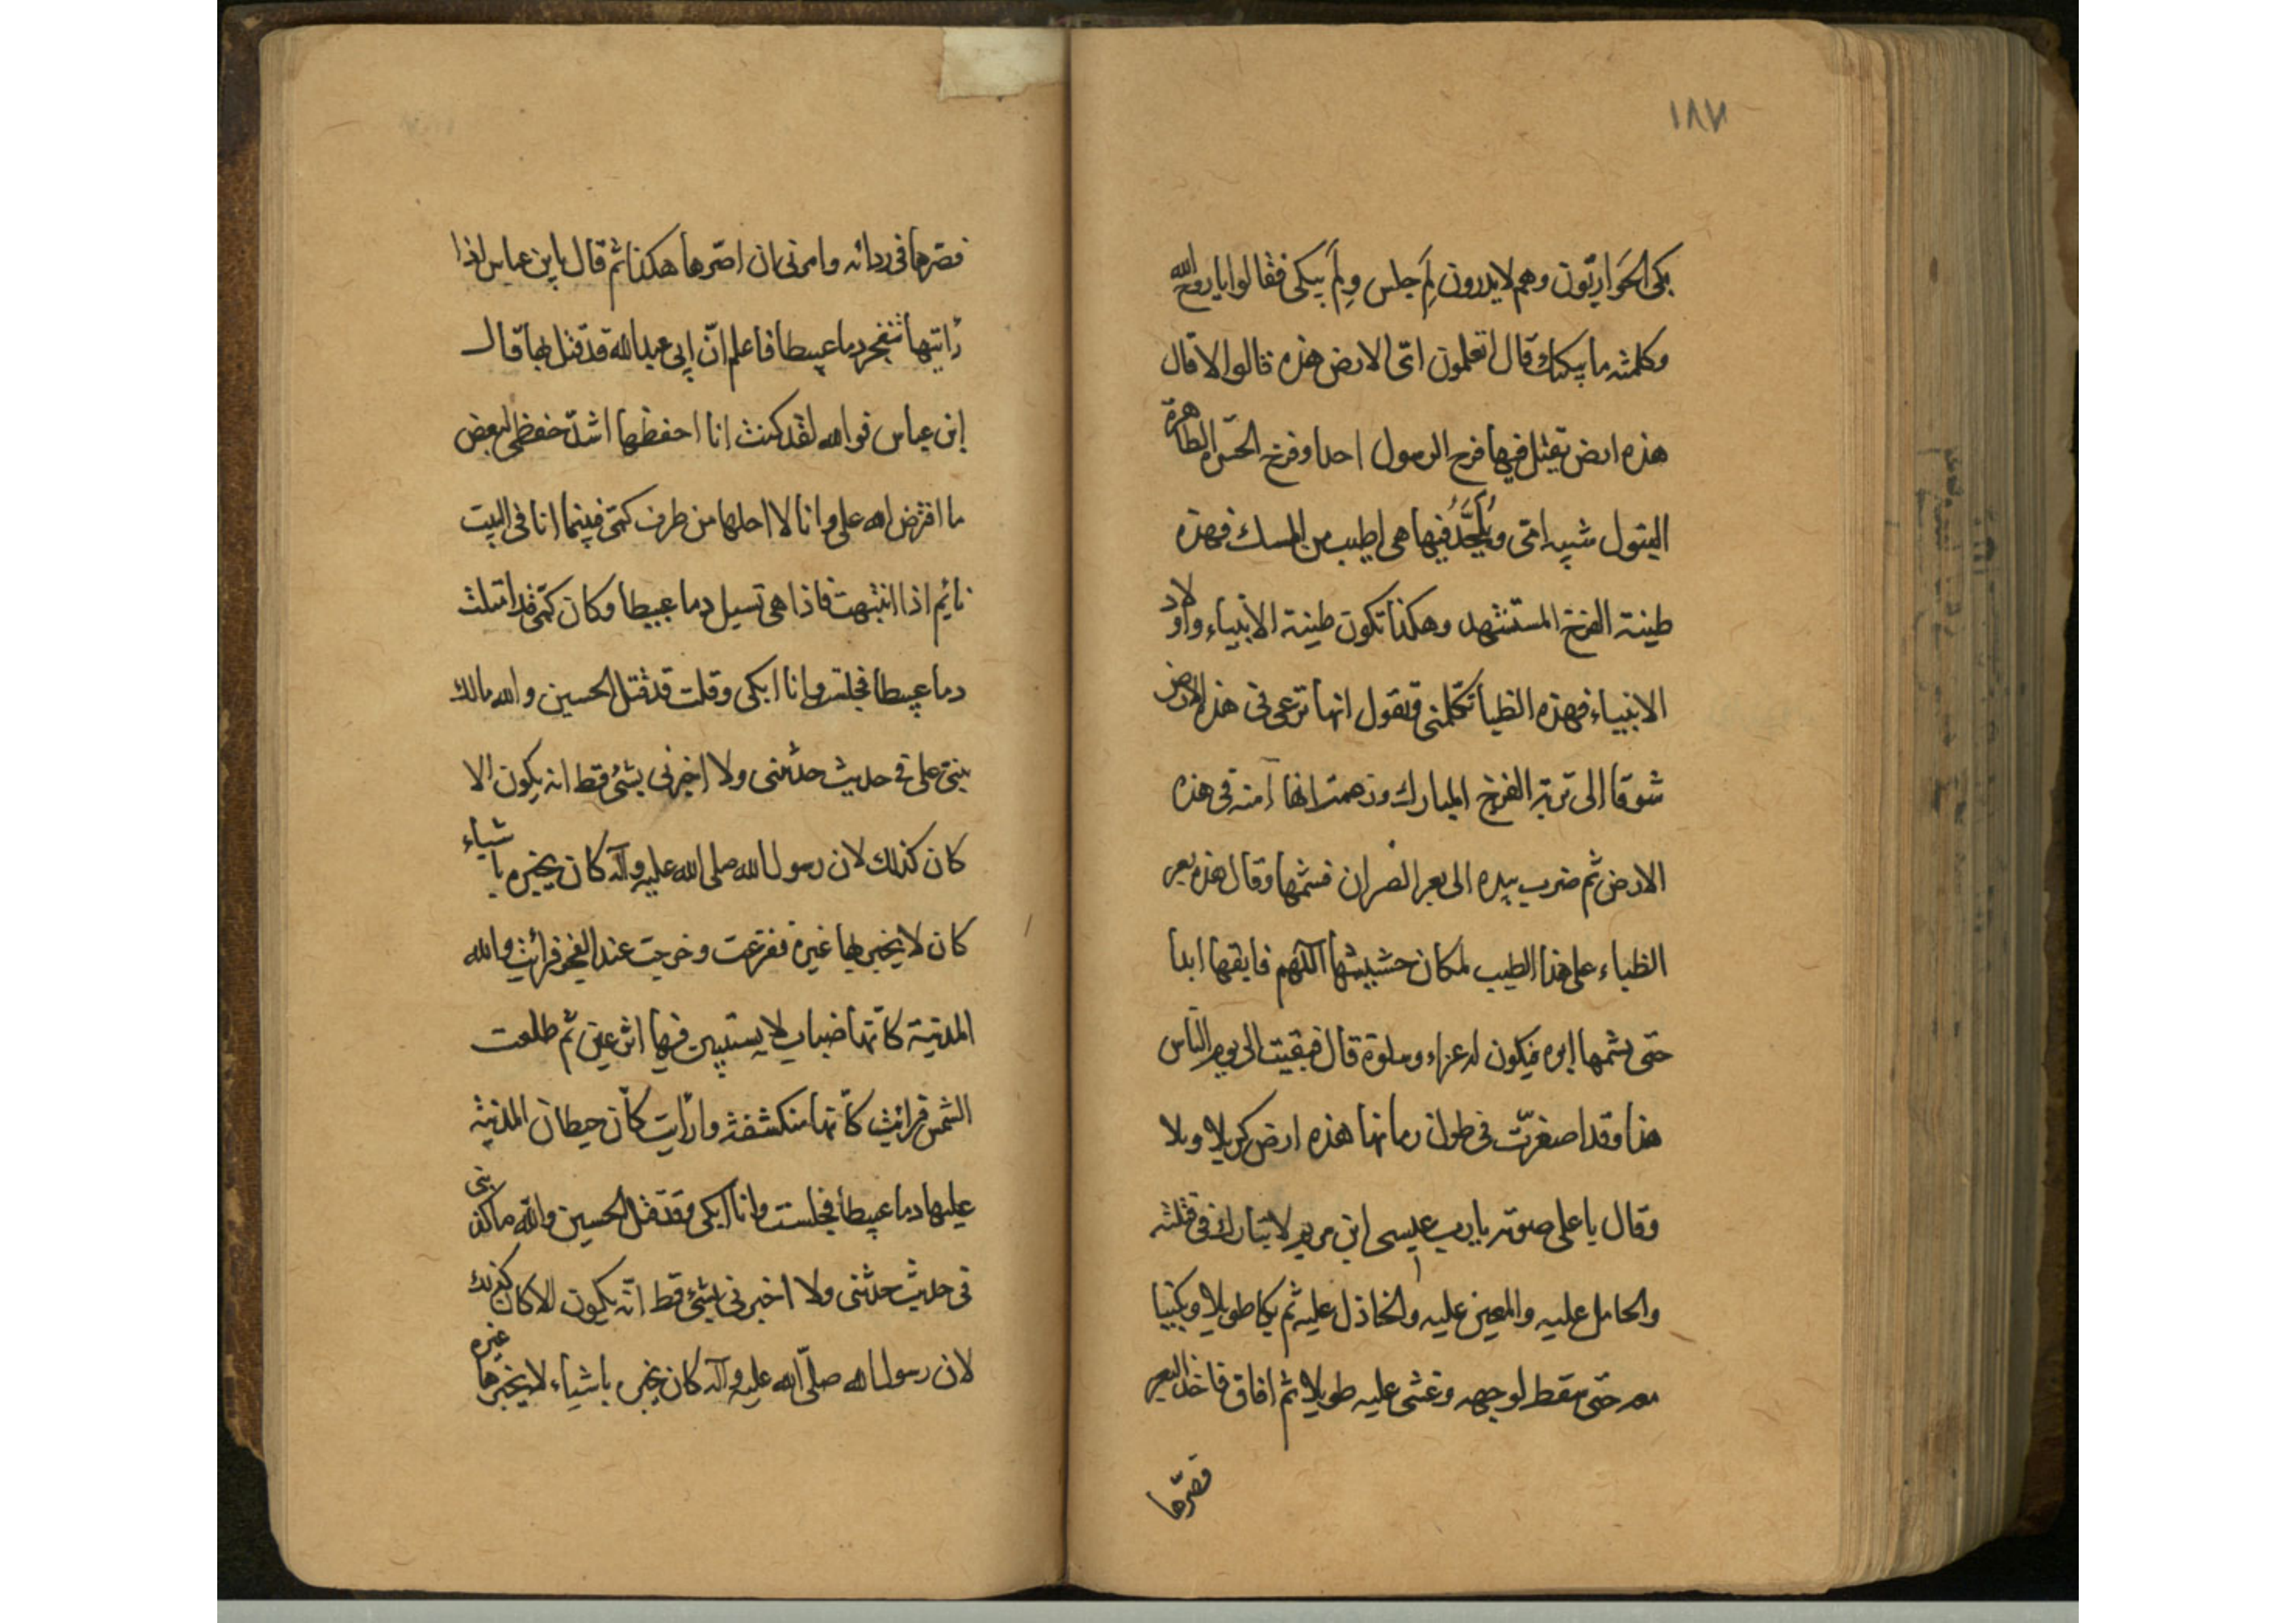 ١٨٧
بكى الحَوَاريّون وهم لايدرون لِمَ جلس ولِمَ يبكى فقالوا يا روح الله
وكلمته ما يبكيك قال اتعلمون اىّ الارض هذه قالوا لا قال
هذه ارض يقتل فيها فرخ الرسول احمد وفرخ الحرّة الطاهرة
البتول شبيه امّى ويُلحَدُ فيها هى اطيب من المسك فهذه
طينة الفرخ المستشهد وهكذا تكون طينة الانبياء واولاد
الانبياء فهذه الظبا تكلّمنى وتقول انها ترعى فى هذه الارض
شوقا الى تربة الفرخ المبارك وزعمت انها آمنه فى هذه
الارض ثم ضرب بيده الى بعر الصران فشمّها وقال هذه بعر
الظباء على هذا الطيب لمكان حشيشها اللّهم فابقها ابدا
حتى يشمها ابوه فيكون له عزاء وسلوة قال فبقيت الى يوم النّاس
هذا وقد اصفرّت فى طول زمانها هذه ارض كربلا وبلا
وقال باعلى صوته يا رب عيسى ابن مريم لا تبارك فى قتلته
والحامل عليه والمعين عليه والخاذل عليه ثم بكا طويلا وبكينا
معه حتّى سقط لوجهه وغشى عليه طويلا ثم افاق فاخذ البعر
فصرّها
فصرّها فى ردائه وامرنى ان اصرّها هكذا ثم قال يابن عباس اذا
رأيتها تنفجر دما عبيطا فاعلم انّ ابى عبدالله قد قتل بها قال
ابن عباس فوالله لقد كنت انا احفظها اشدّ حفظى لبعض
ما افترض الله على وانا لا احلها من طرف كمّى فبينما انا فى البيت
نائم اذا انتبهت فاذا هى تسيل دما عبيطا وكان كمّى قد امتلئت
دما عبيطا فجلت وانا ابكى وقلت قد قتل الحسين والله مالك
بنى على فى حديث حدّثنى ولا اخبرنى بشئ قط انه يكون الا
كان كذلك لان رسول الله صلى الله عليه وآله كان يخبره باشياء
كان لا يخبر بها غيره ففزعت وخرجت عند الفجر فرائت والله
المدنية كانّها ضباب لا يستبين فيها اثر عين ثم طلعت
الشمس فرائت كانّها منكشفة ورأيت كانّ حيطان المدنية
عليها دما عبيطا فجلست وانا ابكى وقد قتل الحسين واللّه ما كذبنى
فى حديث حدثنى ولا اخبرنى بشئ قط انّه يكون الا كان كذلك
لان رسول الله صلّى الله عليه وآله كان يخبره باشياء لا يخبرها غيره